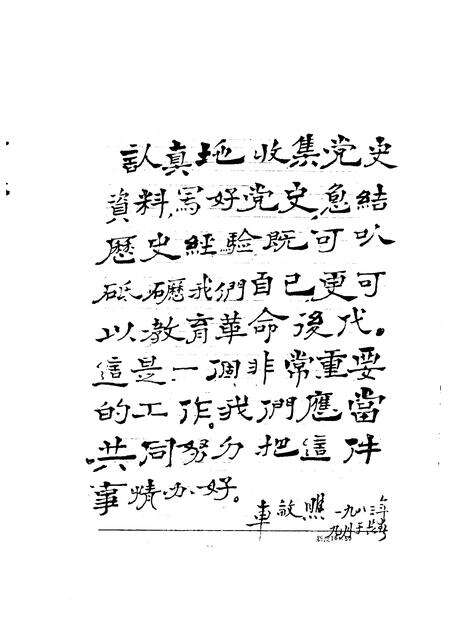 認真地收集党史
資料,写好党史,总結
歷史經驗,既可以
砥礪我們自己,更可
以教育革命後代。
這是一個非常重要
的工作。我們應當
共同努力把這件
事情办好。
車敏瞧 一九八三年
九月于長春